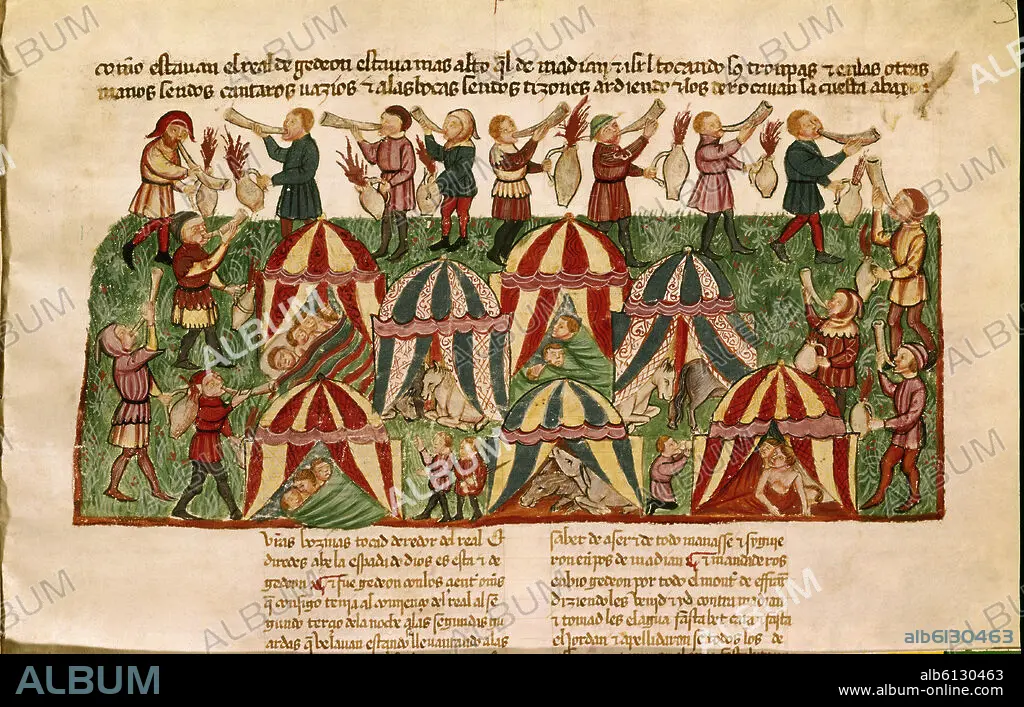 como estauan el real de gedeon estaua mas alto q̃l de madian & isrl tocando sꝯ tronpas & en las otras
manos sendos cantaros vazios & alas bocas sennos tizones ardiendo & los derocauan la cuesta abaxo
vr̃as bozinas tocad derredor del real Et
diredes abe la espada de dios es esta & de
gedeon & fue gedeon con los çient om̃s
q̃ consigo tenja al comienço del real al se
gundo terço dela noche q̃ las segundas gu
ardas q̃ belauan estando lleuantando alas
sabet de aser & de todo manasse & syguie
ron enpos de madian & mandaderos
enbio gedeon por todo el mont de effraym
diziendoles benid & yd contra madian
& tomad les el agua fasta bet cala & fasta
el Jordan & apellidaron se todos los de
ALBUM
alb6130463
alb6130463
www.album-online.com